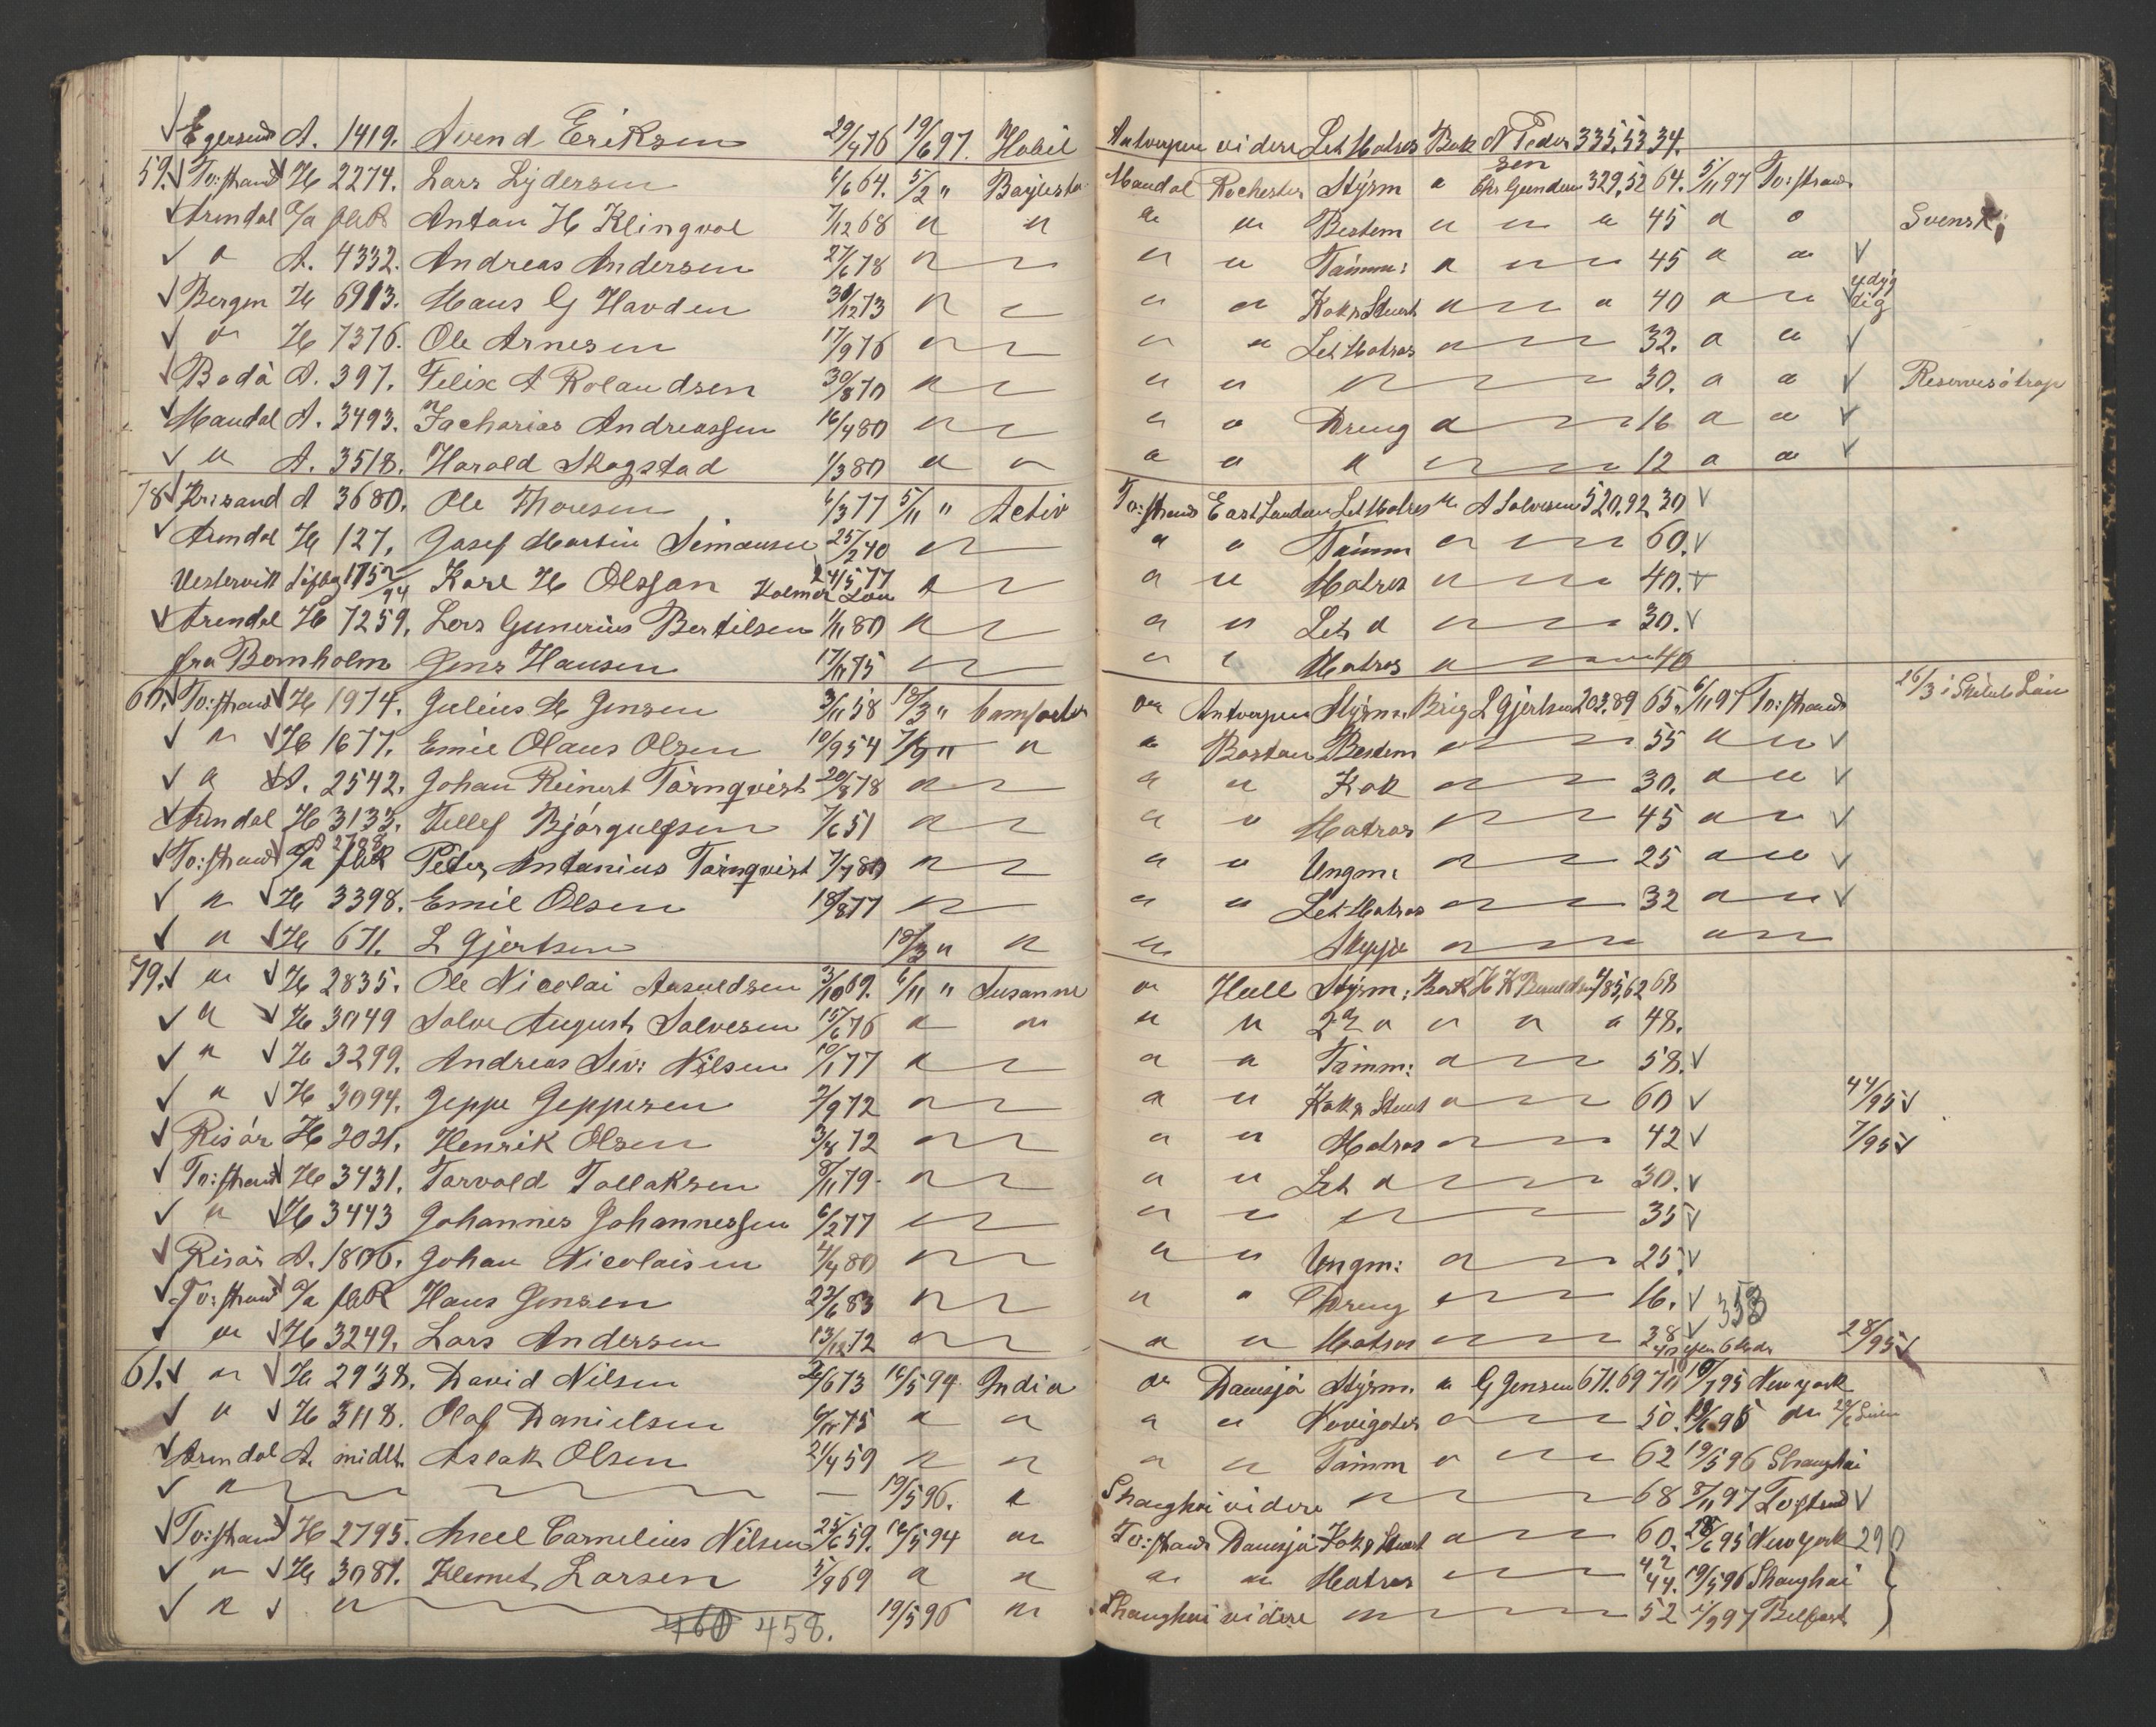 Egersund A. 1419. Svend Eriksen 29/4 76 19/6 97. Habil Antverpen videre Let Matros Bark N Peder 335,53 34.
59. To:strand H 2274. Lars Lydersen 6/6 64. 5/2 " Mandal Rochester Styrm " sen Chr Gundersen 329,52 64. 5/11 97 To:strand
Arendal A/a Anton H Klingvol 7/12 68 " " " " Bestm " " " 45 " " Svensk
" A. 4332. Andreas Andersen 27/6 78 " " " Tømm: " " 45 " "
Bergen H 6913. Hans G Havden 30/12 73 " " " Kok & Stuert " " 40 " " ydyg dig
" H 7376. Ole Arnesen 17/9 76 " " " Let Matros " 32. " "
Bodø A. 397. Felix A Rolandsen 30/8 70 " " " " 30. " " Reserves
Mandal A. 3493. Zacharias Andreassen 16/4 80 " " " Dreng " 16 " "
" A. 3518. Harald Skogstad 1/3 80 " " " " " " 12 " "
78 Krisand A 3680. Ole Thoresen 6/3 77 5/11 " Activ To:strand East London Let Matros " A Salvesen 520,92 30
Arendal H 127. Josef Martin Simonsen 25/2 40 " " " Tømm " " 60.
Vestervik 1152/94 Karl H Olsson Kalmar Län 24/5 77 " " " Matros " " 40.
Arendal H 7259. Lars Gunerius Bertilsen 1/11 80 " " " Let " " 30.
fra Bornholm Jens Hansen 17/11 75 " " " Matros " 40
60. To:strand H 1974. Julius H Jensen 3/11 58 18/3 " Comforter " Antverpen Styrm. Brig L Gjertsen 203,89 65. 6/11 97 To:strand 26/3 i Län
" H 1677. Emil Olaus Olsen 10/9 54 7/9 " " " Boston Bestm " 55 " "
" A. 2542. Johan Reinert Törnqvist 20/8 78 " " " Kok " 30. " "
Arendal H 3133. Tellef Bjørgulfsen 7/6 51 " " " Matros " 45 " "
To:strand A/a A 2788 Peter Antonius Törnqvist 7/7 80 " " " Ungm: " 25 " "
" H 3398. Emil Olsen 18/8 77 " " " Let Matros " 32 " "
" H 671. L Gjertsen 18/3 " " " "
79. " H 2835. Ole Nicolai Aasuldsen 3/10 69. 6/11 " Susanne " Hull Styrm: Bark H K 485,62 68
" H 3049 Salve August Salvesen 15/6 76 " " " " 2den " " " " 48.
" H 3299. Andreas Sev: Nilsen 10/1 77 " " " Tømm: " 58.
" H 3094. Jeppe Jeppesen 2/9 72 " " " Kok & Stuert " 60 44/95
Risør H 2021. Henrik Olsen 3/8 72 " " " Matros " 42 7/95
To:strand H 3431. Torvald Tollaksen 8/11 79. " " " Let " " 30.
" H 3443 Johannes Johannessen 6/2 77 " " " " 35
Risør A. 1806. Johan Nicolaisen 4/4 80 " " " Ungm: " 25.
To:strand A/a Hans Jensen 22/6 83 " " " Dreng " 16. 358
" H 3249. Lars Andersen 13/12 72 " " " Matros " 38 28/95
61. " H 2938. David Nilsen 2/6 73 16/5 94 India " Dansjø Styrm. " G Jensen 671.69 70 10/7 95 New york
" H 3118. Olaf Danielsen 6/11 75 " " " " Navigatør " 50. 19/6 95
Arendal A. midlt. Aslak Olsen 21/4 59 " " " " Tømm " " 62 19/5 96 Shanghai
" 19/5 96. " Shanghai videre " 68 8/11 97 To:strand
To:strand H 2795. Cornelius Nilsen 25/6 59. 16/5 94 " To:strand Dansjø Kok & Stuert " 60. 28/6 95 New york 290
" H 3081. Klemet Larsen 5/9 69 " " " " Matros " 42 44. 19/5 96 Shanghai
" " 19/5 96 " Shanghai videre " 52 9 97 Belfast
460 458.